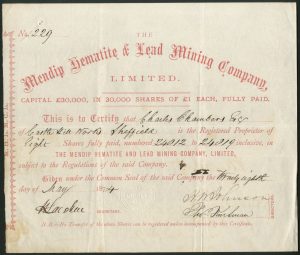 No. 229
THE
Mendip Hematite & Lead Mining Company,
LIMITED.
CAPITAL £30,000, IN 30,000 SHARES OF £1 EACH, FULLY PAID.
This is to Certify that Charles Chambers Esq
of Works Sheffield is the Registered Proprietor of
Eight Shares fully paid, numbered 24012 to 24019 inclusive, in
THE MENDIP HEMATITE AND LEAD MINING COMPANY, LIMITED,
subject to the Regulations of the said Company.
Given under the Common Seal of the said Company the Twenty eighth
day of May 1874
SECRETARY.
N.B.—No Transfer of the above Shares can be registered unless accompanied by this Certificate.